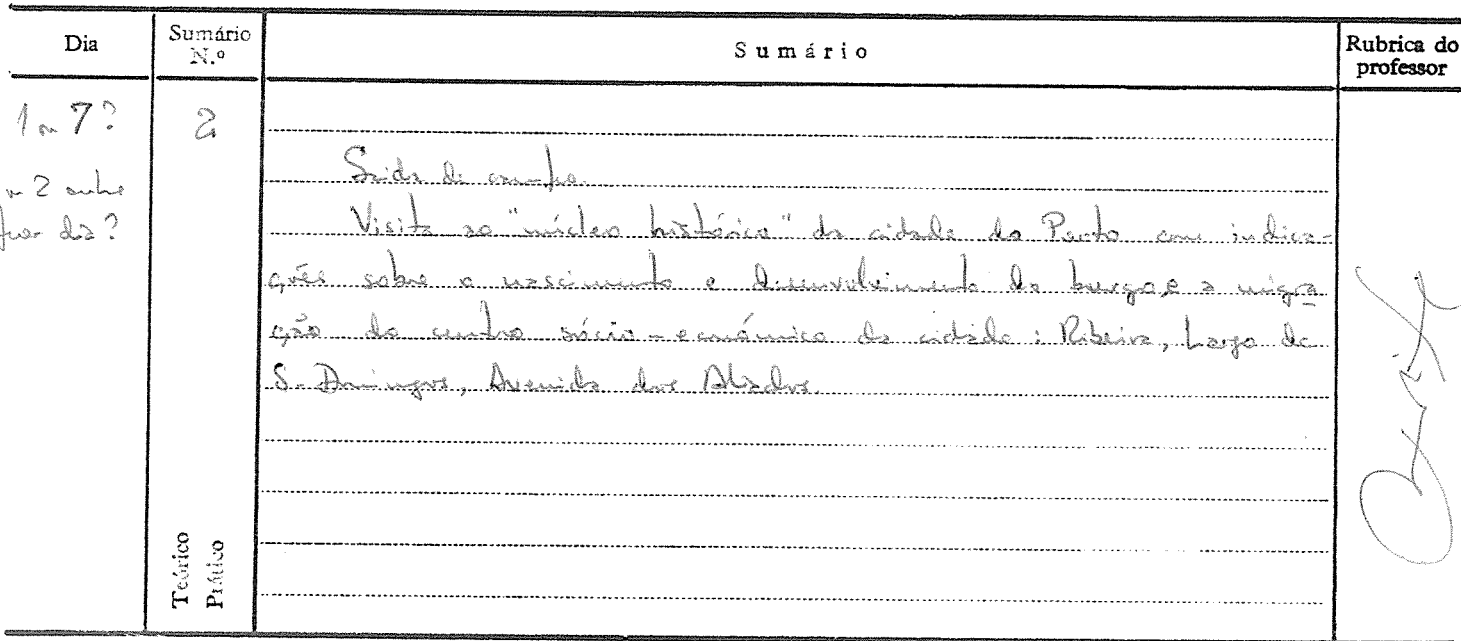 Dia
Sumário N.º
Sumário
Rubrica do professor
1 ou 7?
2
ou 2 outro
dia?
Saída de campo.
Visita ao "núcleo histórico" da cidade do Porto com indica-
ções sobre o nascimento e desenvolvimento do burgo e a migra
ção do centro sócio-económico da cidade: Ribeira, Largo de
S. Domingos, Avenida dos Aliados.
Teórico
Prático